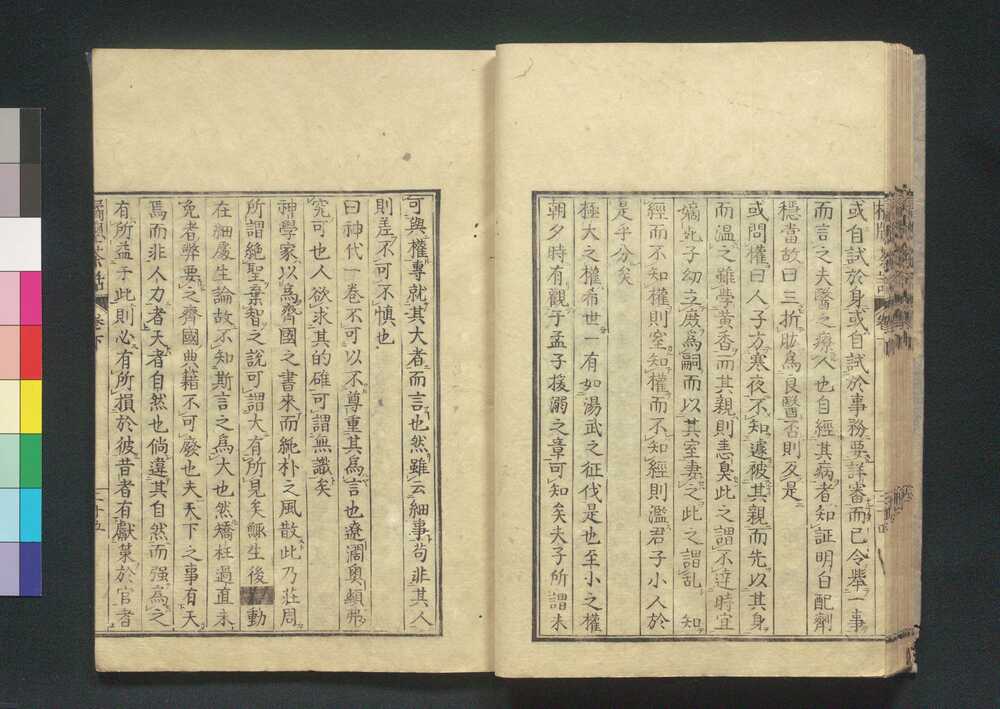 或自試於身或自試於事務要詳審而已今舉一事
而言之夫醫之療人也自經其病者知証明白配劑
穩當故曰三折肱爲良醫否則反是
或問權曰人子方寒夜不知遽被其親而先以其身
而溫之雖學黃香而其親則恚臭此之謂不達時宜
嫡子幼立庶爲嗣而以其室妻之此之謂乱 知
經而不知權則窒知權而不知經則濫君子小人於
是乎分矣
極大之權希世一有如湯武之征伐是也至小之權
朝夕時有觀于孟子援溺之章可知矣夫子所謂未
可與權專就其大者而言也然雖云細事苟非其人
則差不可不慎也
曰神代一卷不可以不尊重其爲言也遼濶奧
究可也人欲求其的確可謂無識矣
神學家以爲齊國之書來而純朴之風散此乃莊周
所謂絕聖棄智之說可謂大有所見矣鯫生後動
在細處生論故不知斯言之爲大也然矯枉過直未
免者弊要之齊國典籍不可廢也夫天下之事有天
焉而非人力者天者自然也倘違其自然而强爲之
有所益于此則必有所損於彼昔者有獻菓於官者
橘窻茶話 卷下 三十五